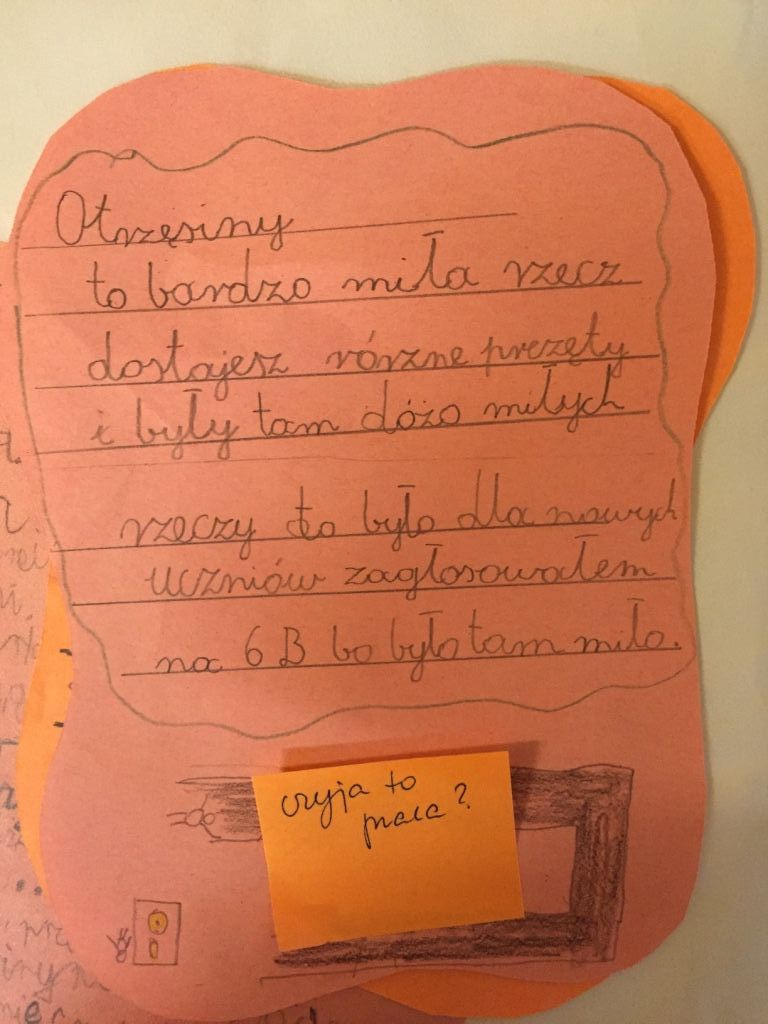 Otrzęsiny
to bardzo miła rzecz
dostajesz rórzne prezęty
i były tam dóżo miłych
rzeczy to było dla nowych
uczniów zagłosowałem
na 6 B bo było tam miło.
czyja to
praca?